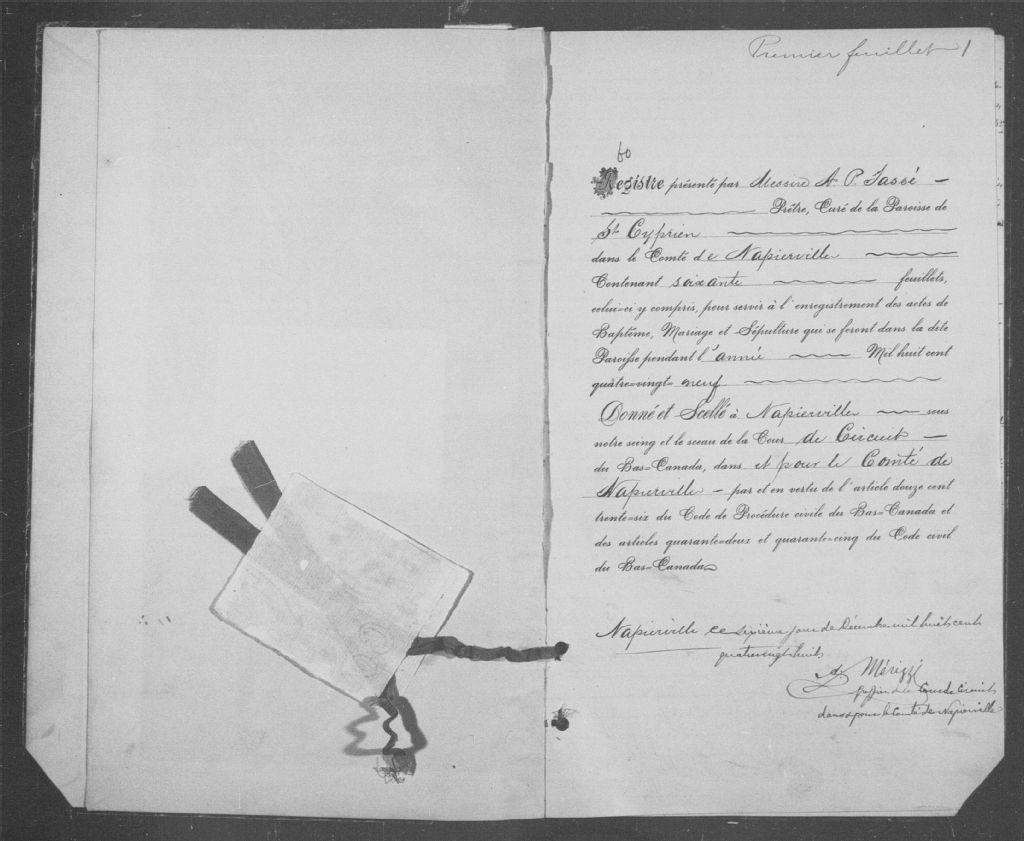 Premier feuillet 1
60
Registre présenté par Messire A. P. Tassé
Prêtre, Curé de la Paroisse de
St Cyprien
dans le Comté de Napierville
Contenant soixante feuillets,
celui-ci y compris, pour servir à l'enregistrement des actes de
Baptême, Mariage et Sépulture qui se feront dans la dite
Paroisse pendant l'année Mil huit cent
quâtre=vingt= neuf
Donné et Scellé à Napierville sous
notre seing et le sceau de la Cour de Circuit
du Bas=Canada, dans et pour le Comté de
Napierville par et en vertu de l'article douze cent
trente=six du Code de Procédure civile du Bas=Canada et
des articles quarante=deux et quarante=cinq du Code civil
du Bas=Canada
Napierville ce sixième jour de Décembre mil huit cent
quatrevingt huit
Mérizzi
de la Cour de Circuit
dans & pour le Comté de Napierville